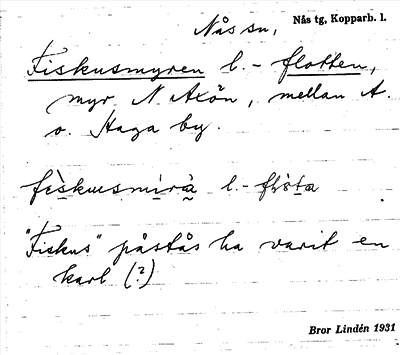 Nås sn, Nås tg, Kopparb. l.
Fiskusmyren l. - flotten,
myr N Axön, mellan A.
o. Haga by.
fèskusmirà l. - flòta
"Fiskus" påstås ha varit en
karl (?)
Bror Lindén 1931